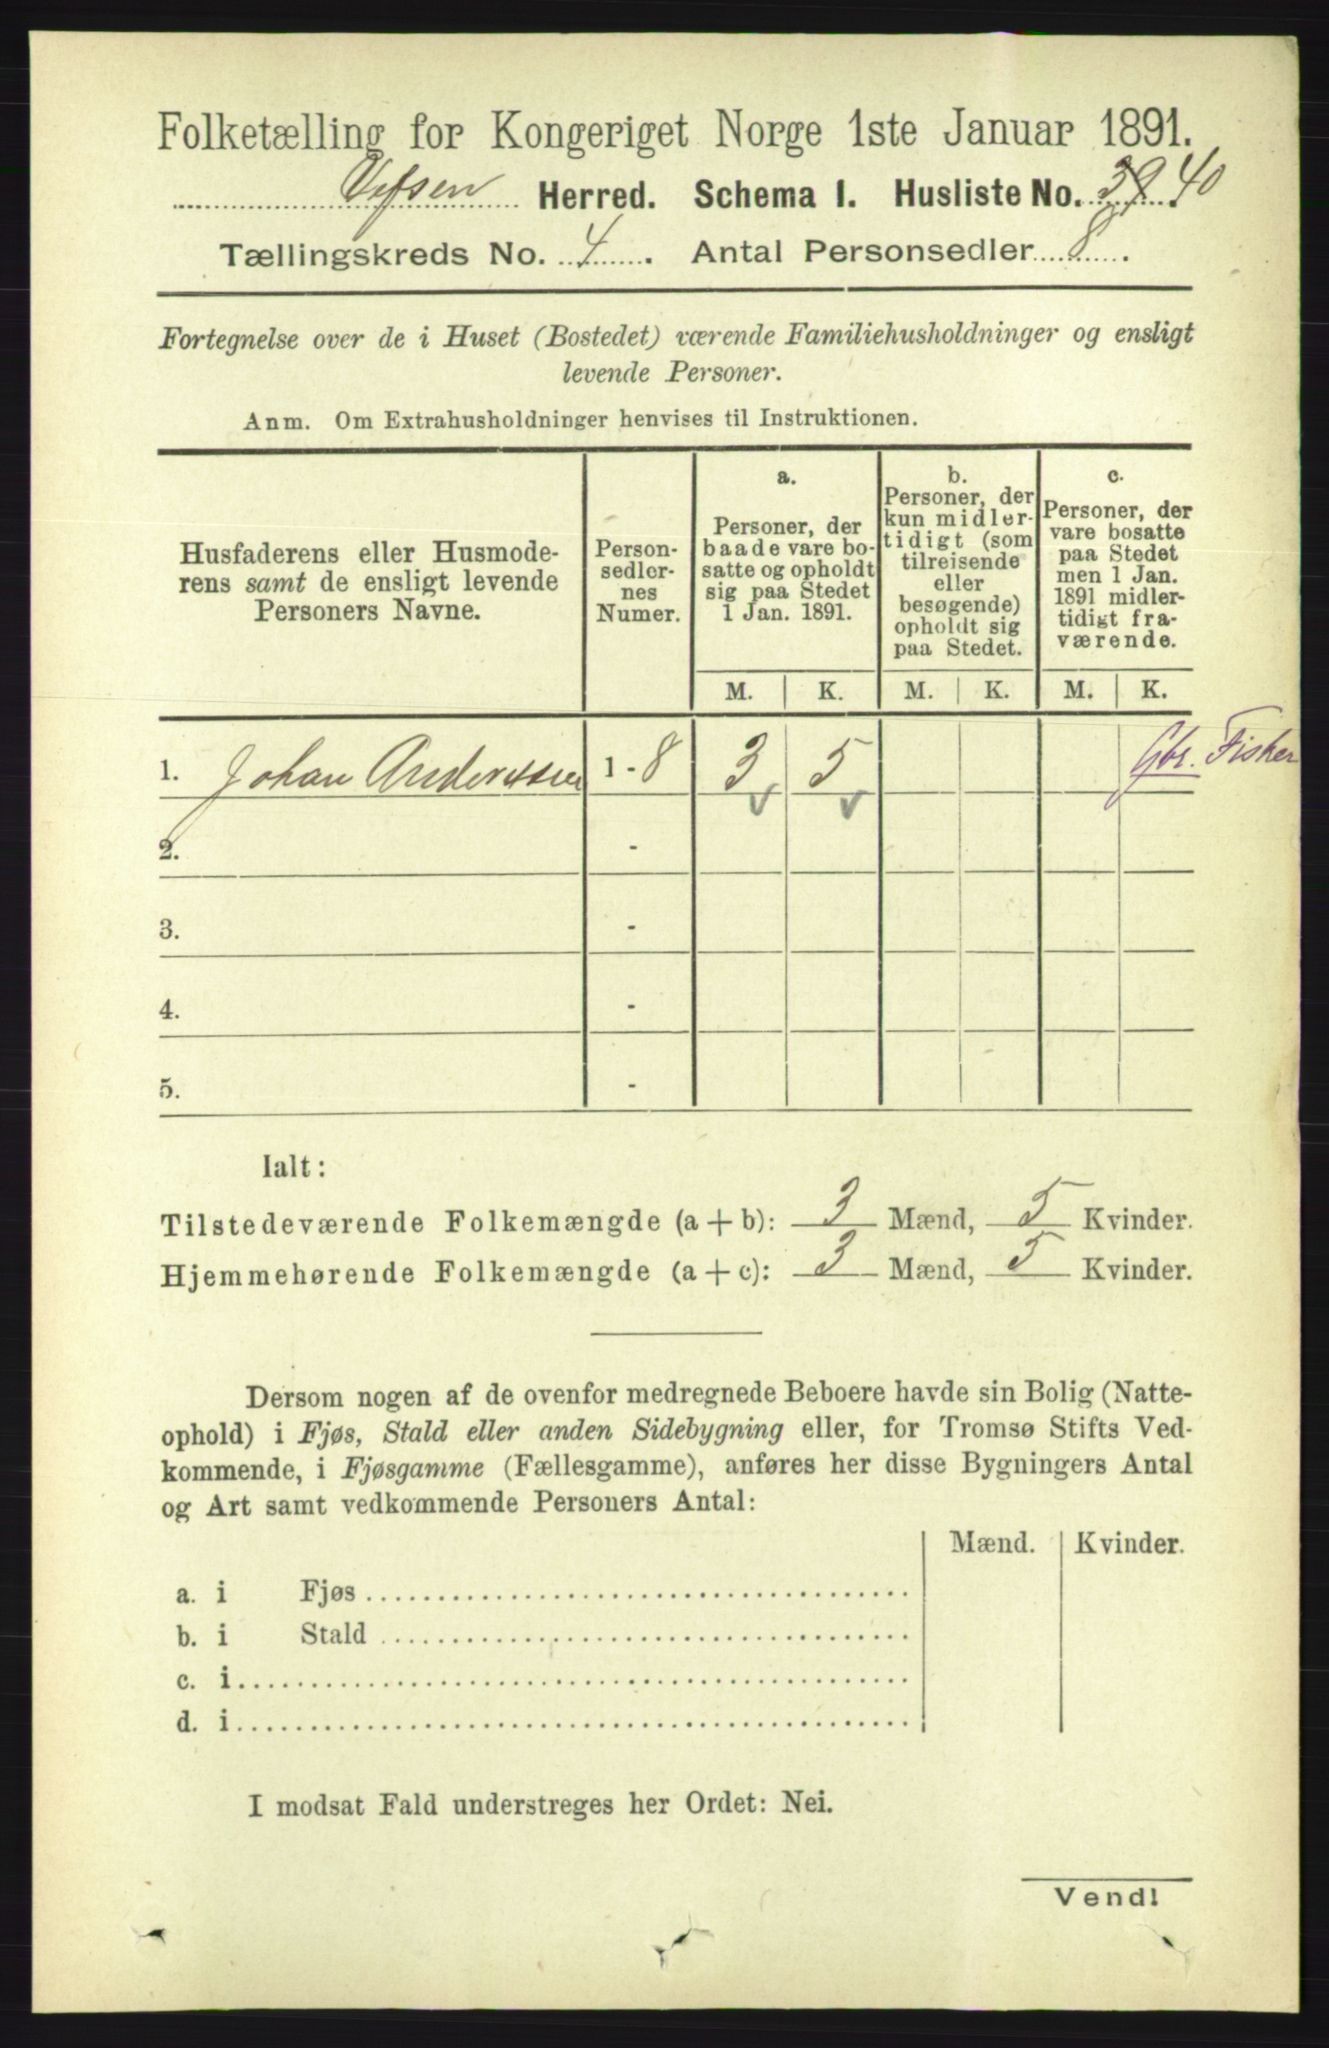 Folketælling for Kongeriget Norge 1ste Januar 1891.
Vefsen Herred. Schema I. Husliste No. 39. 40
Tællingskreds No. 4. Antal Personsedler 8.
Fortegnelse over de i Huset (Bostedet) værende Familiehusholdninger og ensligt
levende Personer.
Anm. Om Extrahusholdninger henvises til Instruktionen.
Husfaderens eller Husmode-
rens samt de ensligt levende
Personers Navne.
Person-
sedler-
nes
Numer.
a.
Personer, der
baade vare bo-
satte og opholdt
sig paa Stedet
1 Jan. 1891.
b.
Personer, der
kun midler-
tidigt (som
tilreisende
eller
besøgende)
opholdt sig
paa Stedet.
c.
Personer, der
vare bosatte
paa Stedet
men 1 Jan.
1891 midler-
tidigt fra-
værende.
M. K. M. K. M. K.
1. Johan Anderssen 1 - 8 3 5 Gbr. Fisker
2. -
3. -
4. -
5. -
Ialt:
Tilstedeværende Folkemængde (a + b): 3 Mænd, 5 Kvinder.
Hjemmehørende Folkemængde (a + c): 3 Mænd, 5 Kvinder.
Dersom nogen af de ovenfor medregnede Beboere havde sin Bolig (Natte-
ophold) i Fjøs, Stald eller anden Sidebygning eller, for Tromsø Stifts Ved-
kommende, i Fjøsgamme (Fællesgamme), anføres her disse Bygningers Antal
og Art samt vedkommende Personers Antal:
Mænd. Kvinder.
a. i Fjøs
b. i Stald
c. i
d. i
I modsat Fald understreges her Ordet: Nei.
Vend!